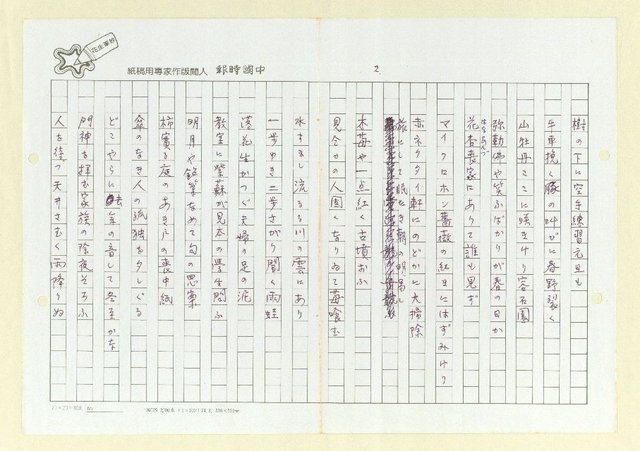 中國時報 人間版作家專用稿紙
2.
樹の下に空手練習元旦も
牛車挽く豚の叫びに春野裂く
山牡丹ここに咲きけり容石園
弥勒佛や笑ふばかりが春の日か
花杏喪家にありて誰も見ず
はなあんず
マイクロホン薔薇の紅唇にはずみけり
赤ネクタイ軒にのどかに大掃除
旅にして眠たき朝の
木苺や一点紅く古墳おふ
見合せの人固くなりゐて苺喰む
水すまし流るる川の雲にあり
一歩ゆき二歩さがり聞く雨蛙
落花生かつぐ夫婦の足の泥
教室に紫蘇が見本の學生問ふ
明月や銘菓なめて句の思案
柿實る庭のあき戸の喪中紙
傘のなき人の孤独を夕しぐる
どこやらに金の音して冬至かな
門神を拝む家族の除夜そろふ
人を待つ天井さむく雨降りぬ